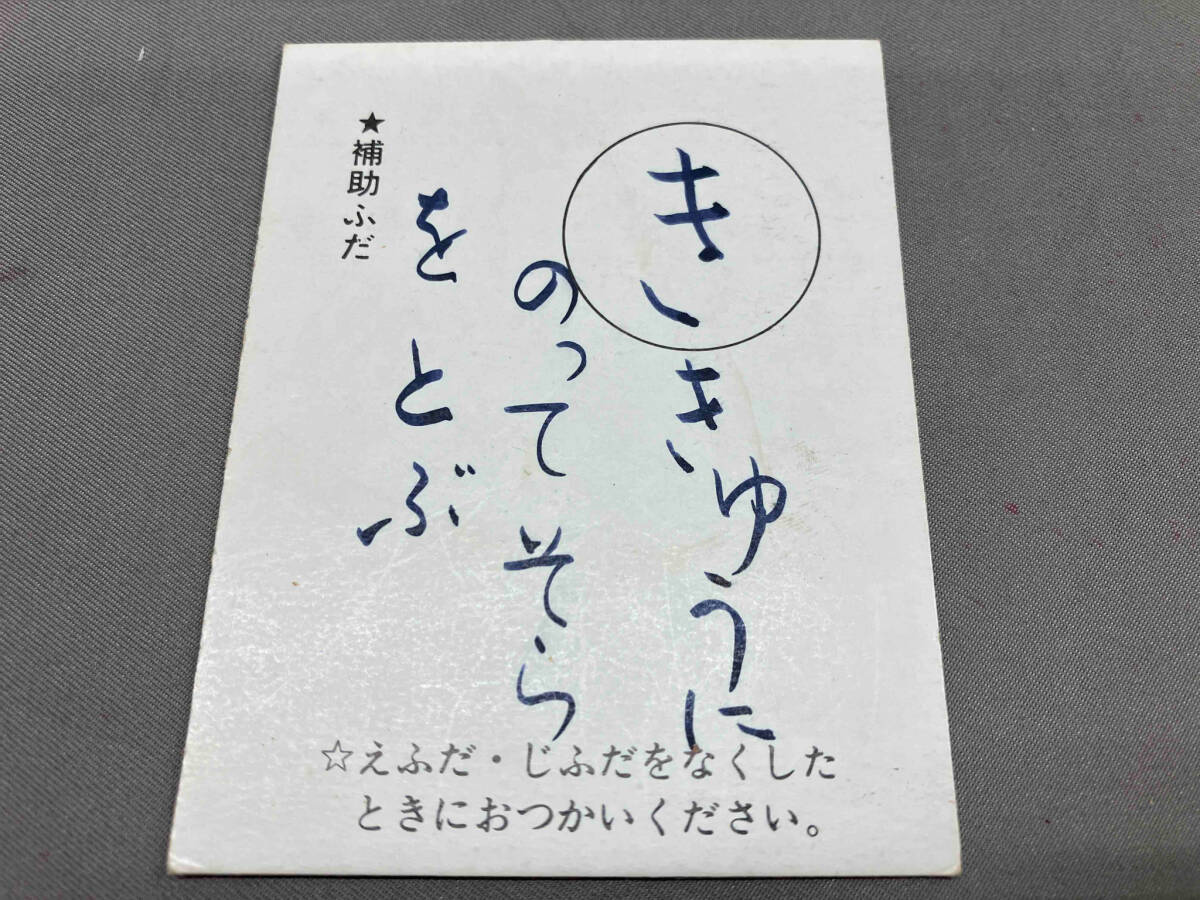 き
きゅうに
のってそら
をとぶ
★補助ふだ
☆えふだ・じふだをなくした
ときにおつかいください。